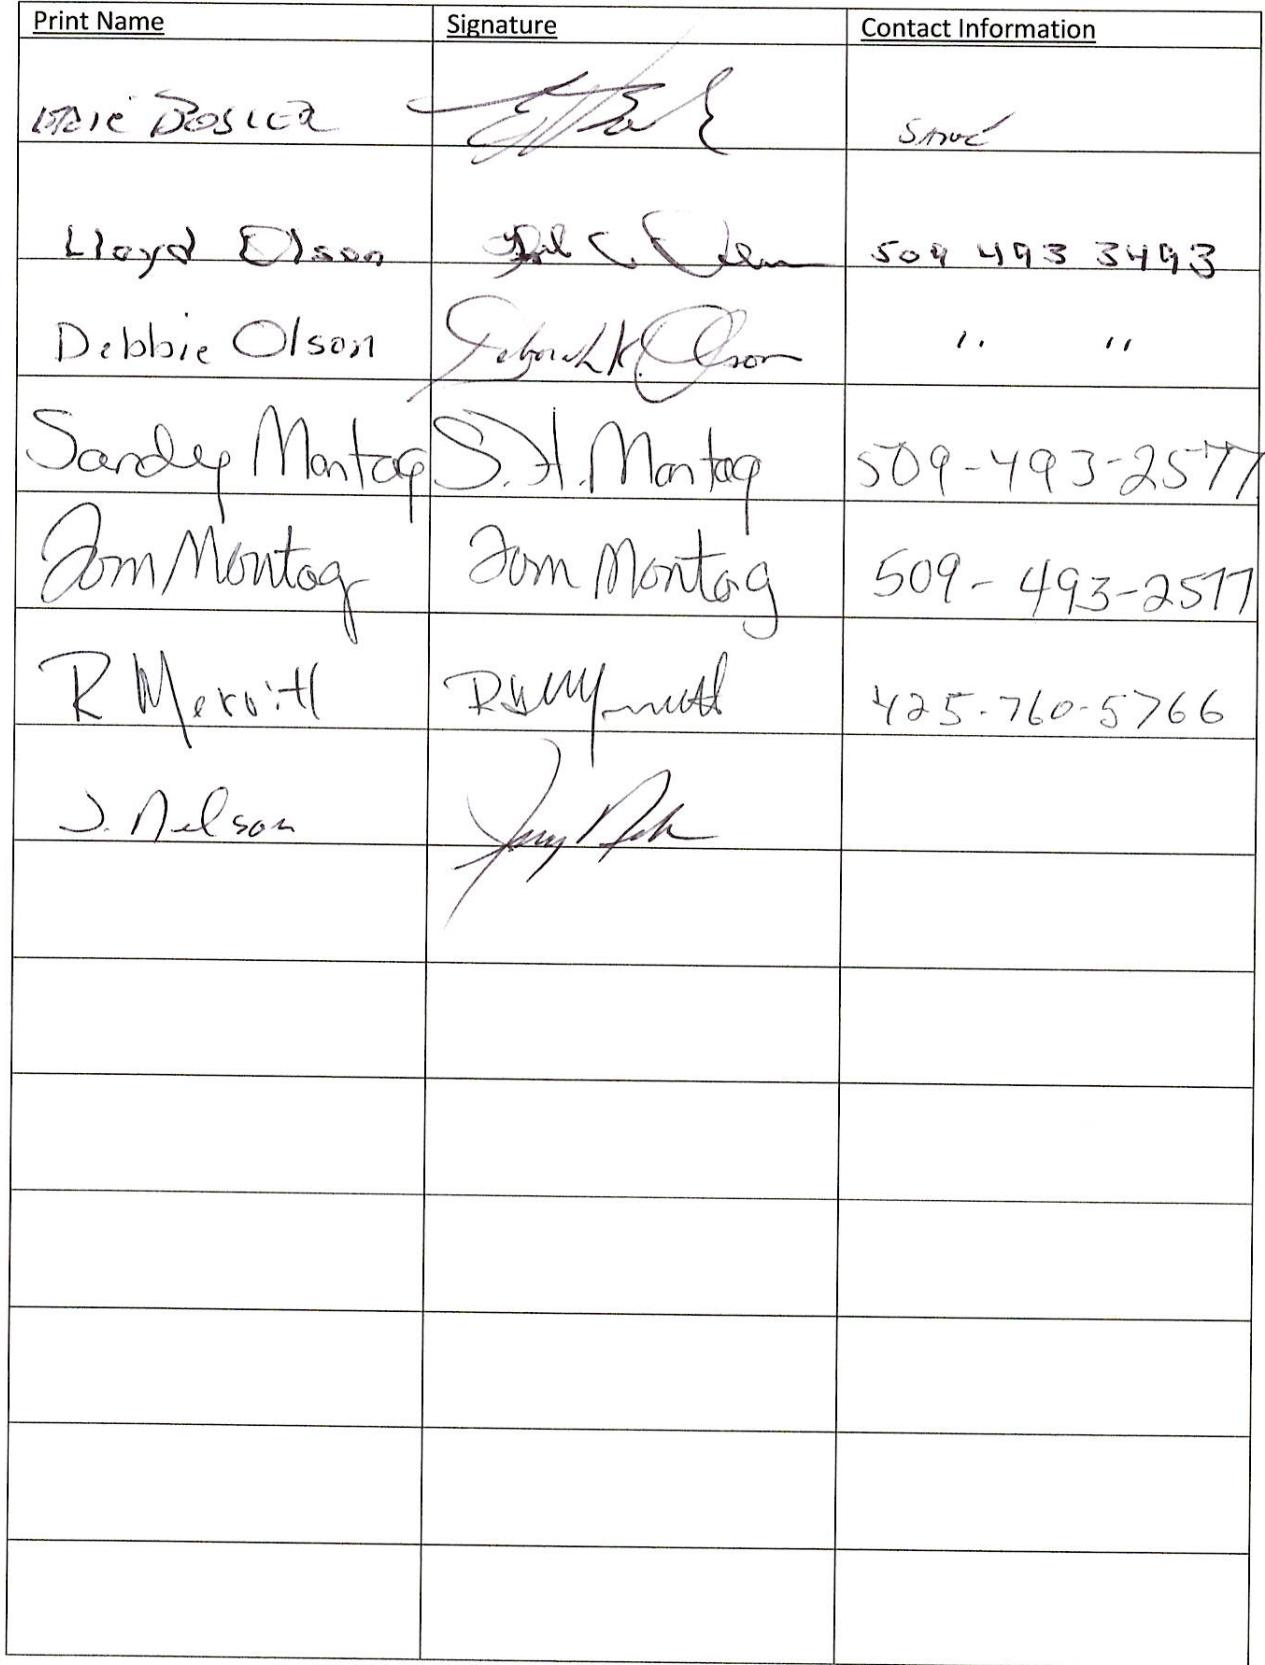 Print Name Signature Contact Information
Bosler Same
Lloyd Olson 509 493 3493
Debbie Olson Deborah K. Olson " "
Sandy Montag S.H. Montag 509-493-2577
Tom Montag Tom Montag 509-493-2577
R Merritt 425-760-5766
J. Nelson